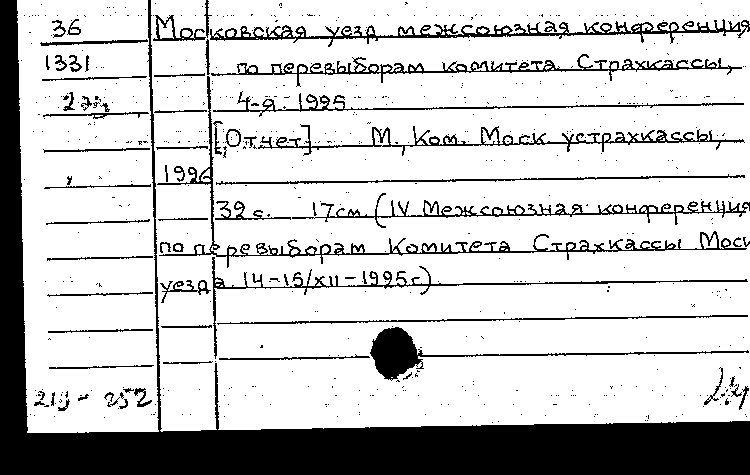 36 Московская уезд межсоюзная конференция
1331 по перевыборам комитета Страхкассы,
2 экз 4-я. 1925
[Отчет]. М., Ком. Моск устрахкассы,
1926
32 с. 17см. (IV Межсоюзная конференция
по перевыборам Комитета Страхкассы Моск
уезда. 14-15/XII-1925г)
219 - 252